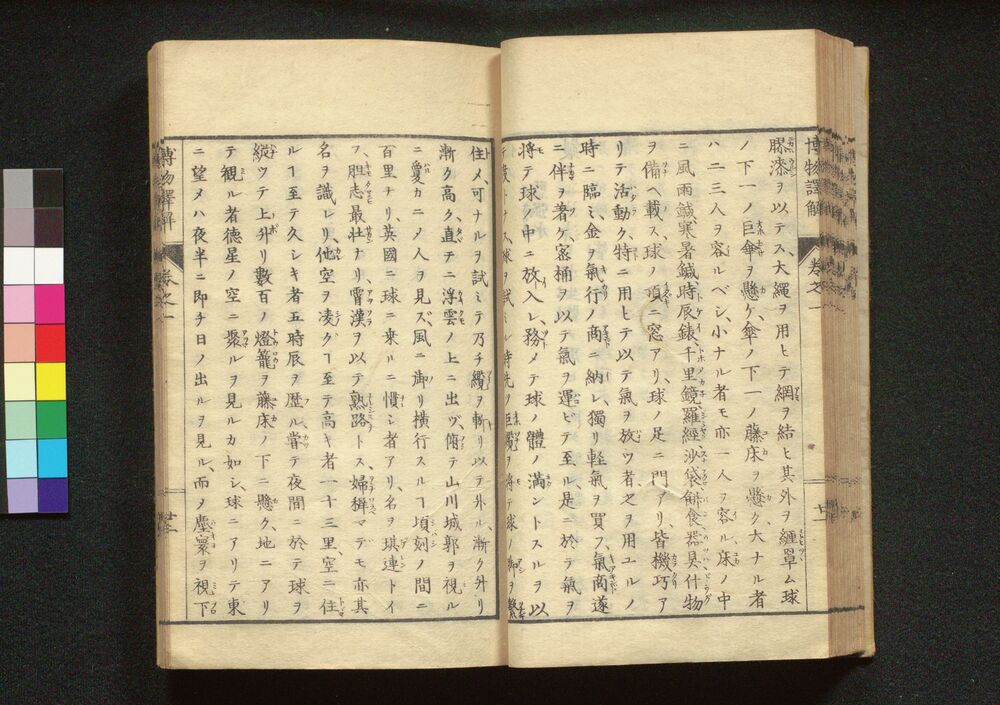 博物譯解 卷之一
膠漆ヲ以テス、大繩ヲ用ヒテ綱ヲ結ヒ其外ヲ纏罩ム球
ノ下一ノ巨傘ヲ懸ケ、傘ノ下一ノ藤床ヲ懸ク、大ナル者
ハ二三人ヲ容ルベシ、小ナル者モ亦一人ヲ容ル、床ノ中
ニ風雨鍼寒暑鍼時辰錶千里鏡羅經沙袋餅食器具什物
ヲ備ヘ載ス、球ノ頂ニ窓アリ、球ノ足ニ門アリ、皆機巧ア
リテ活動ク、特ニ用ヒテ以テ氣ヲ放ツ者之ヲ用ユルノ
時ニ臨ミ、金ヲ氣行ノ商ニ納レ、獨リ輕氣ヲ買フ、氣商遂
ニ伴ヲ著ケ、密桶ヲ以テ氣ヲ運ビテ至ル、是ニ於テ氣ヲ
將テ球ノ中ニ放入レ、務メテ球ノ體ノ滿ントスルヲ以
球ヲ試ミル時先ツ巨纜ヲ將テ球ノ脚ヲ繋
住メ可ナルヲ試ミテ乃チ纜ヲ斬リ以テ升ル、漸ク升リ
漸ク高ク、直チニ浮雲ノ上ニ出ヅ、俯テ山川城郭ヲ視ル
ニ夐カニノ人ヲ見ズ、風ニ御リ橫行スルヿ頃刻ノ間ニ
百里ナリ、英國ニ球ニ乗ルニ慣シ者アリ、名ヲ琪連トイ
フ、胆志最壮ナリ、霄漢ヲ以テ熟路トス、婦稚マデモ亦其
名ヲ識レリ、他空ヲ凌クヿ至テ高キ者一十三里、空ニ住
ルヿ至テ久シキ者五時辰ヲ歴ル、嘗テ夜間ニ於テ球ヲ
縱ツテ上升リ數百ノ燈籠ヲ藤床ノ下ニ懸ク、地ニアリ
テ観ル者德星ノ空ニ聚ルヲ見ルカ如シ、球ニアリテ東
ニ望メハ夜半ニ即チ日ノ出ルヲ見ル、而ノ塵寰ヲ視下
博物譯解 卷之一